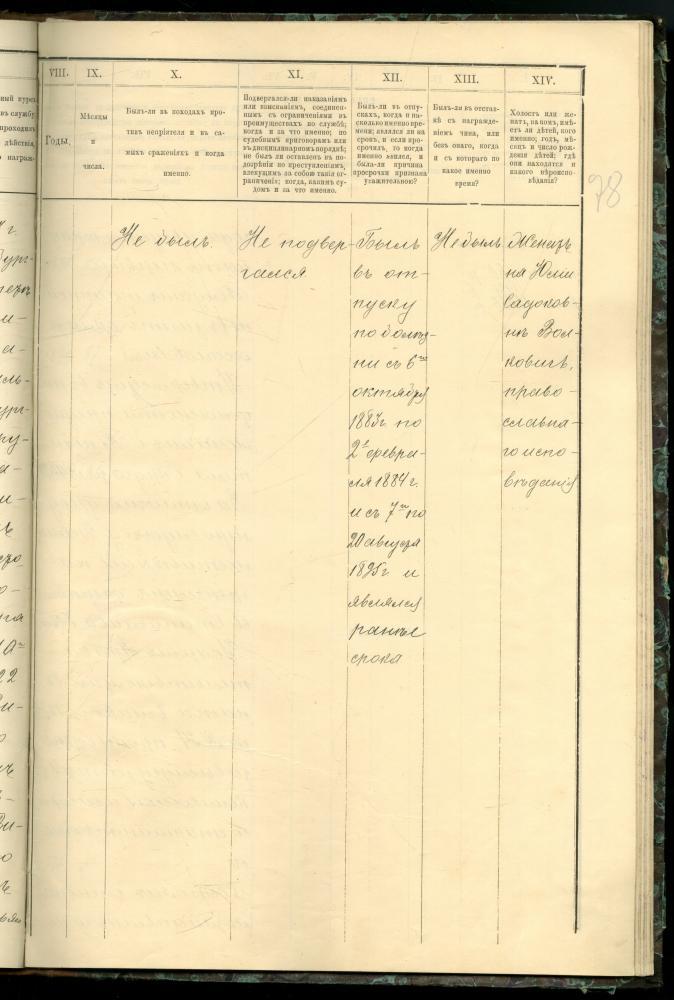 VIII.
IX.
X.
XI.
XII.
XIII.
XIV.
98
Годы.
Мѣсяцы
и
числа.
Былъ-ли въ походахъ про-
тивъ непріятеля и въ са-
мыхъ сраженіяхъ и когда
именно.
Подвергался-ли наказаніямъ
или взысканіямъ, соединен-
нымъ съ ограниченіями въ
преимуществахъ по службѣ;
когда и за что именно; по
судебнымъ приговорамъ или
въ дисциплинарномъ порядкѣ;
не былъ ли оставленъ въ по-
дозрѣніи по преступленіямъ,
влекущимъ за собою такія ог-
раниченія; когда, какимъ су-
домъ и за что именно.
Былъ-ли въ отпу-
скахъ, когда и на-
сколько именно вре-
мени; являлся ли на
срокъ, и если про-
срочилъ, то когда
именно явился, и
была-ли причина
просрочки признана
уважительною?
Былъ-ли въ отстав-
кѣ съ награжде-
ніемъ чина, или
безъ онаго, когда
и съ котораго по
какое именно
время?
Холостъ или же-
натъ, на комъ, имѣ-
етъ ли дѣтей, кого
именно; годъ, мѣ-
сяцъ и число рож-
денія дѣтей; гдѣ
они находятся и
какого вѣроиспо-
вѣданія?
Не былъ.
Не подвер-
гался
Былъ
въ от-
пуску
по болѣз-
ни съ 6го
октября
1883г. по
2е февра-
ля 1884 г.
и съ 7го по
20 августа
1895г. и
являлся
ранѣе
срока
Не былъ
Женатъ
на Юлии
Садоков-
нѣ Вол-
ковичъ,
право-
славна-
го испо-
вѣданія